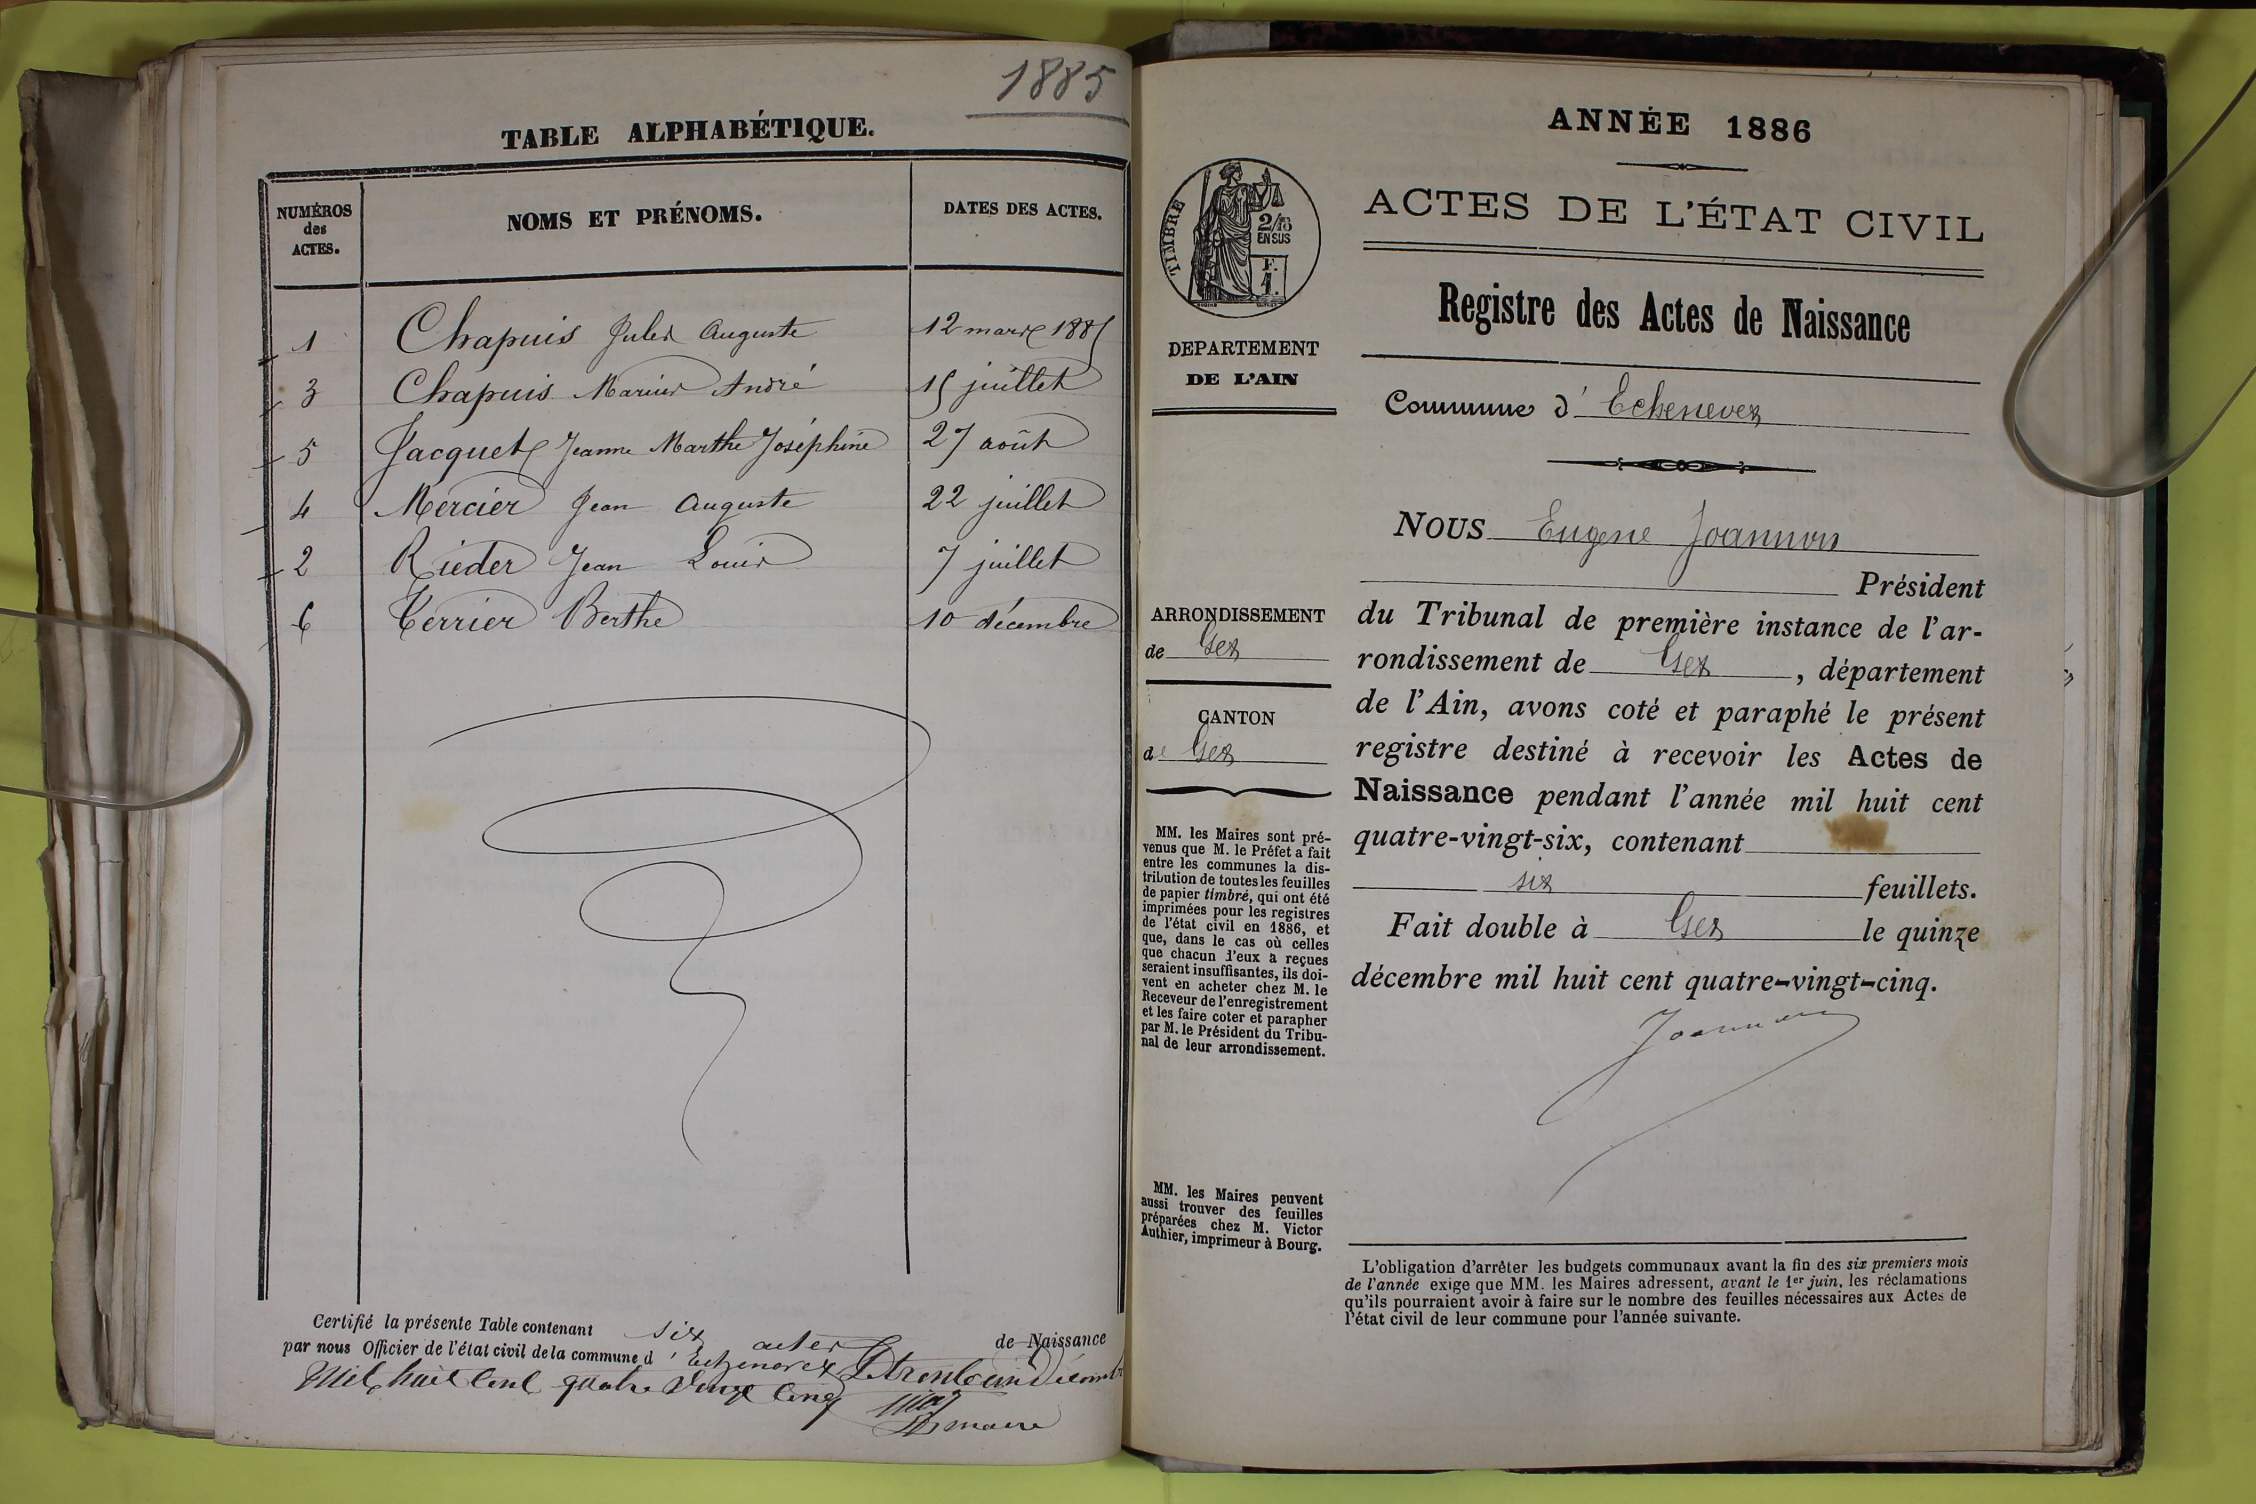 1885
TABLE ALPHABÉTIQUE.
NUMÉROS
des
ACTES.
NOMS ET PRÉNOMS.
DATES DES ACTES.
1 Chapuis Jules Auguste 12 mars 1885
3 Chapuis Marius André 15 juillet
5 Jacquet Jeanne Marthe Joséphine 27 août
4 Mercier Jean Auguste 22 juillet
2 Rieder Jean Louis 7 juillet
6 Terrier Berthe 10 décembre
Certifié la présente Table contenant six actes de Naissance
par nous Officier de l'état civil de la commune d' Echenevex Le trente un Décembre
Mil huit Cent quatre Vingt Cinq
Le maire
ANNÉE 1886
ACTES DE L'ÉTAT CIVIL
Registre des Actes de Naissance
TIMBRE
2/10
EN SUS
F.
1.
DEPARTEMENT
DE L'AIN
Commune d' Echenevex
NOUS Eugene Joannon
Président
du Tribunal de première instance de l'ar-
rondissement de Gex, département
de l'Ain, avons coté et paraphé le présent
registre destiné à recevoir les Actes de
Naissance pendant l'année mil huit cent
quatre-vingt-six, contenant
six feuillets.
Fait double à Gex le quinze
décembre mil huit cent quatre-vingt-cinq.
Joannon
ARRONDISSEMENT
de Gex
CANTON
de Gex
MM. les Maires sont pré-
venus que M. le Préfet a fait
entre les communes la dis-
tribution de toutes les feuilles
de papier timbré, qui ont été
imprimées pour les registres
de l'état civil en 1886, et
que, dans le cas où celles
que chacun d'eux a reçues
seraient insuffisantes, ils doi-
vent en acheter chez M. le
Receveur de l'enregistrement
et les faire coter et parapher
par M. le Président du Tribu-
nal de leur arrondissement.
MM. les Maires peuvent
aussi trouver des feuilles
préparées chez M. Victor
Authier, imprimeur à Bourg.
L'obligation d'arrêter les budgets communaux avant la fin des six premiers mois
de l'année exige que MM. les Maires adressent, avant le 1er juin, les réclamations
qu'ils pourraient avoir à faire sur le nombre des feuilles nécessaires aux Actes de
l'état civil de leur commune pour l'année suivante.